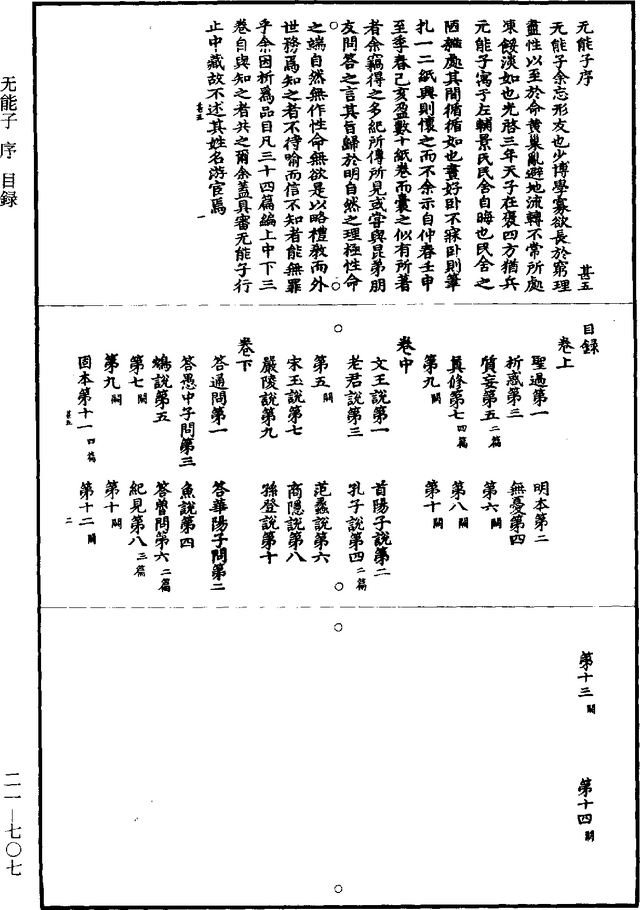 无能子 序 目録
二一—七〇七
无能子序 甚五
无能子余忘形友也少博學寡欲長於窮理
盡性以至於命黃巢亂避地流轉不常所處
凍餒淡如也光啓三年天子在褒四方猶兵
无能子寓于左輔景氏民舍自晦也民舍之
陋雜處其間循循如也晝好卧不寐卧則筆
札一二紙興則懷之而不余示自仲春壬申
至季春己亥盈數十紙卷而囊之似有所著
者余竊得之多紀所傳所見或嘗與昆弟朋
友問答之言其旨歸於明自然之理極性命
之端自然無作性命無欲是以略禮教而外
世務焉知之者不待喻而信不知者能無罪
乎余因析為品目凡三十四篇編上中下三
卷自與知之者共之爾余蓋具審无能子行
止中藏故不述其姓名游宦焉
甚五 一
目録
卷上
聖過第一 明本第二
析惑第三 無憂第四
質妄第五二篇 第六闕
真修第七四篇 第八闕
第九闕 第十闕
卷中
文王說第一 首陽子說第二
老君說第三 孔子說第四二篇
第五闕 范蠡說第六
宋玉說第七 商隱說第八
嚴陵說第九 孫登說第十
卷下
答通問第一 答華陽子問第二
答愚中子問第三 魚說第四
鴆說第五 答魯問第六二篇
第七闕 紀見第八三篇
第九闕 第十闕
固本第十一四篇 第十二闕
甚五 二
第十三闕 第十四闕